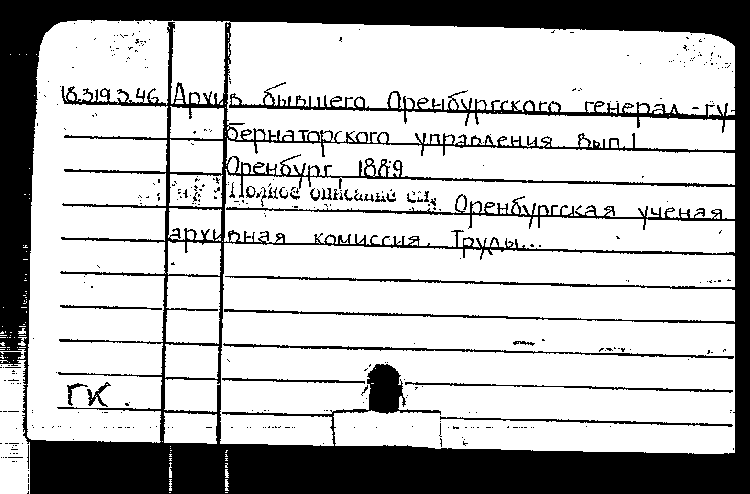 18.319.3.46 Архив бывшего Оренбургского генерал-гу-
бернаторского управления Вып.1
Оренбург, 1889
Полное описание см. Оренбургская ученая
архивная комиссия. Труды...
ГК.